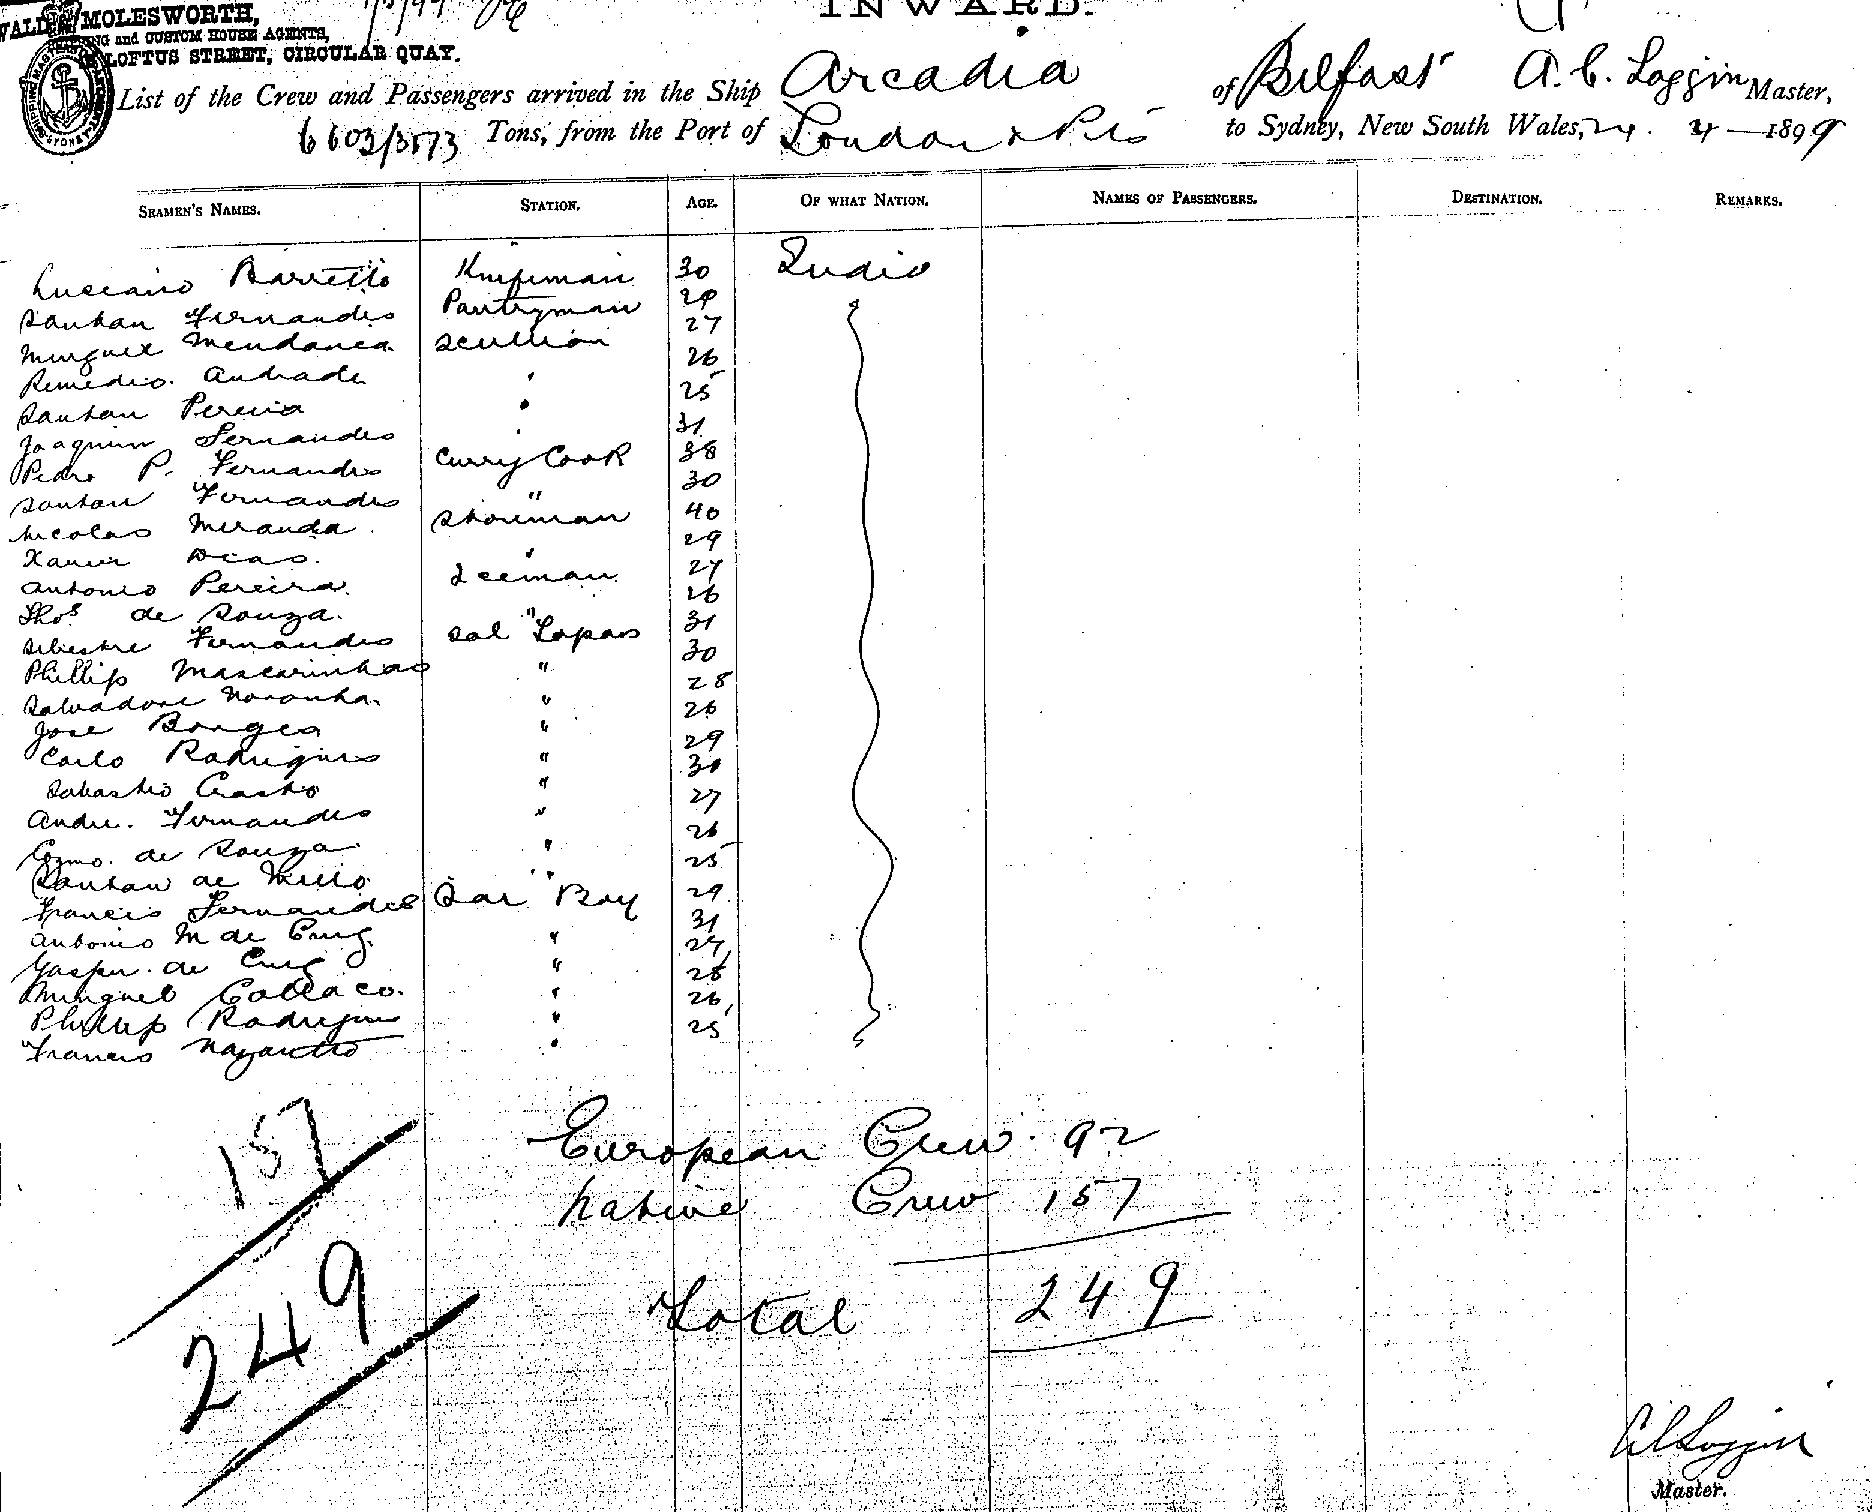 INWARD.
MOLESWORTH,
and CUSTOM HOUSE AGENTS,
LOFTUS STREET, CIRCULAR QUAY.
List of the Crew and Passengers arrived in the Ship Arcadia of Belfast A. C. Loggin Master,
6603/3573 Tons, from the Port of London & Pts to Sydney, New South Wales, 24. 4 — 1899
SEAMEN'S NAMES. STATION. AGE. OF WHAT NATION. NAMES OF PASSENGERS. DESTINATION. REMARKS.
Luciano Barretto Knifeman 30 India
Santan Fernandes Pantryman 29
Minguel Mendanca Scullion 27
Remedio. Andrade " 26
Santan Pereira " 25
Joaquim Fernandes " 31
Pedro P. Fernandes Curry Cook 38
Santan Fernandes " 30
Nicolas Miranda. Storeman 40
Xavier Dias. " 29
Antonio Pereira. Iceman 27
Thos de Souza. " 26
Silvestre Fernandes Sal Topas 31
Phillip Mascarinhas " 30
Salvadore Noronha. " 28
Jose Borges " 26
Carlo Rodrigues " 29
Sabastio Crasto " 30
Andre. Fernandes " 27
Cosmo. de Souza " 26
Santan de Mello. " 25
Francis Fernandes Bar Boy 29
Antonio M de Cruz. " 31
Gasper. de Cruz " 27
Minguel Collaco. " 28
Phillip Rodrigues " 26
Francis Nazaretto " 25
157
European Crew. 92
Native Crew 157
249
Total 249
A C Loggin
Master.